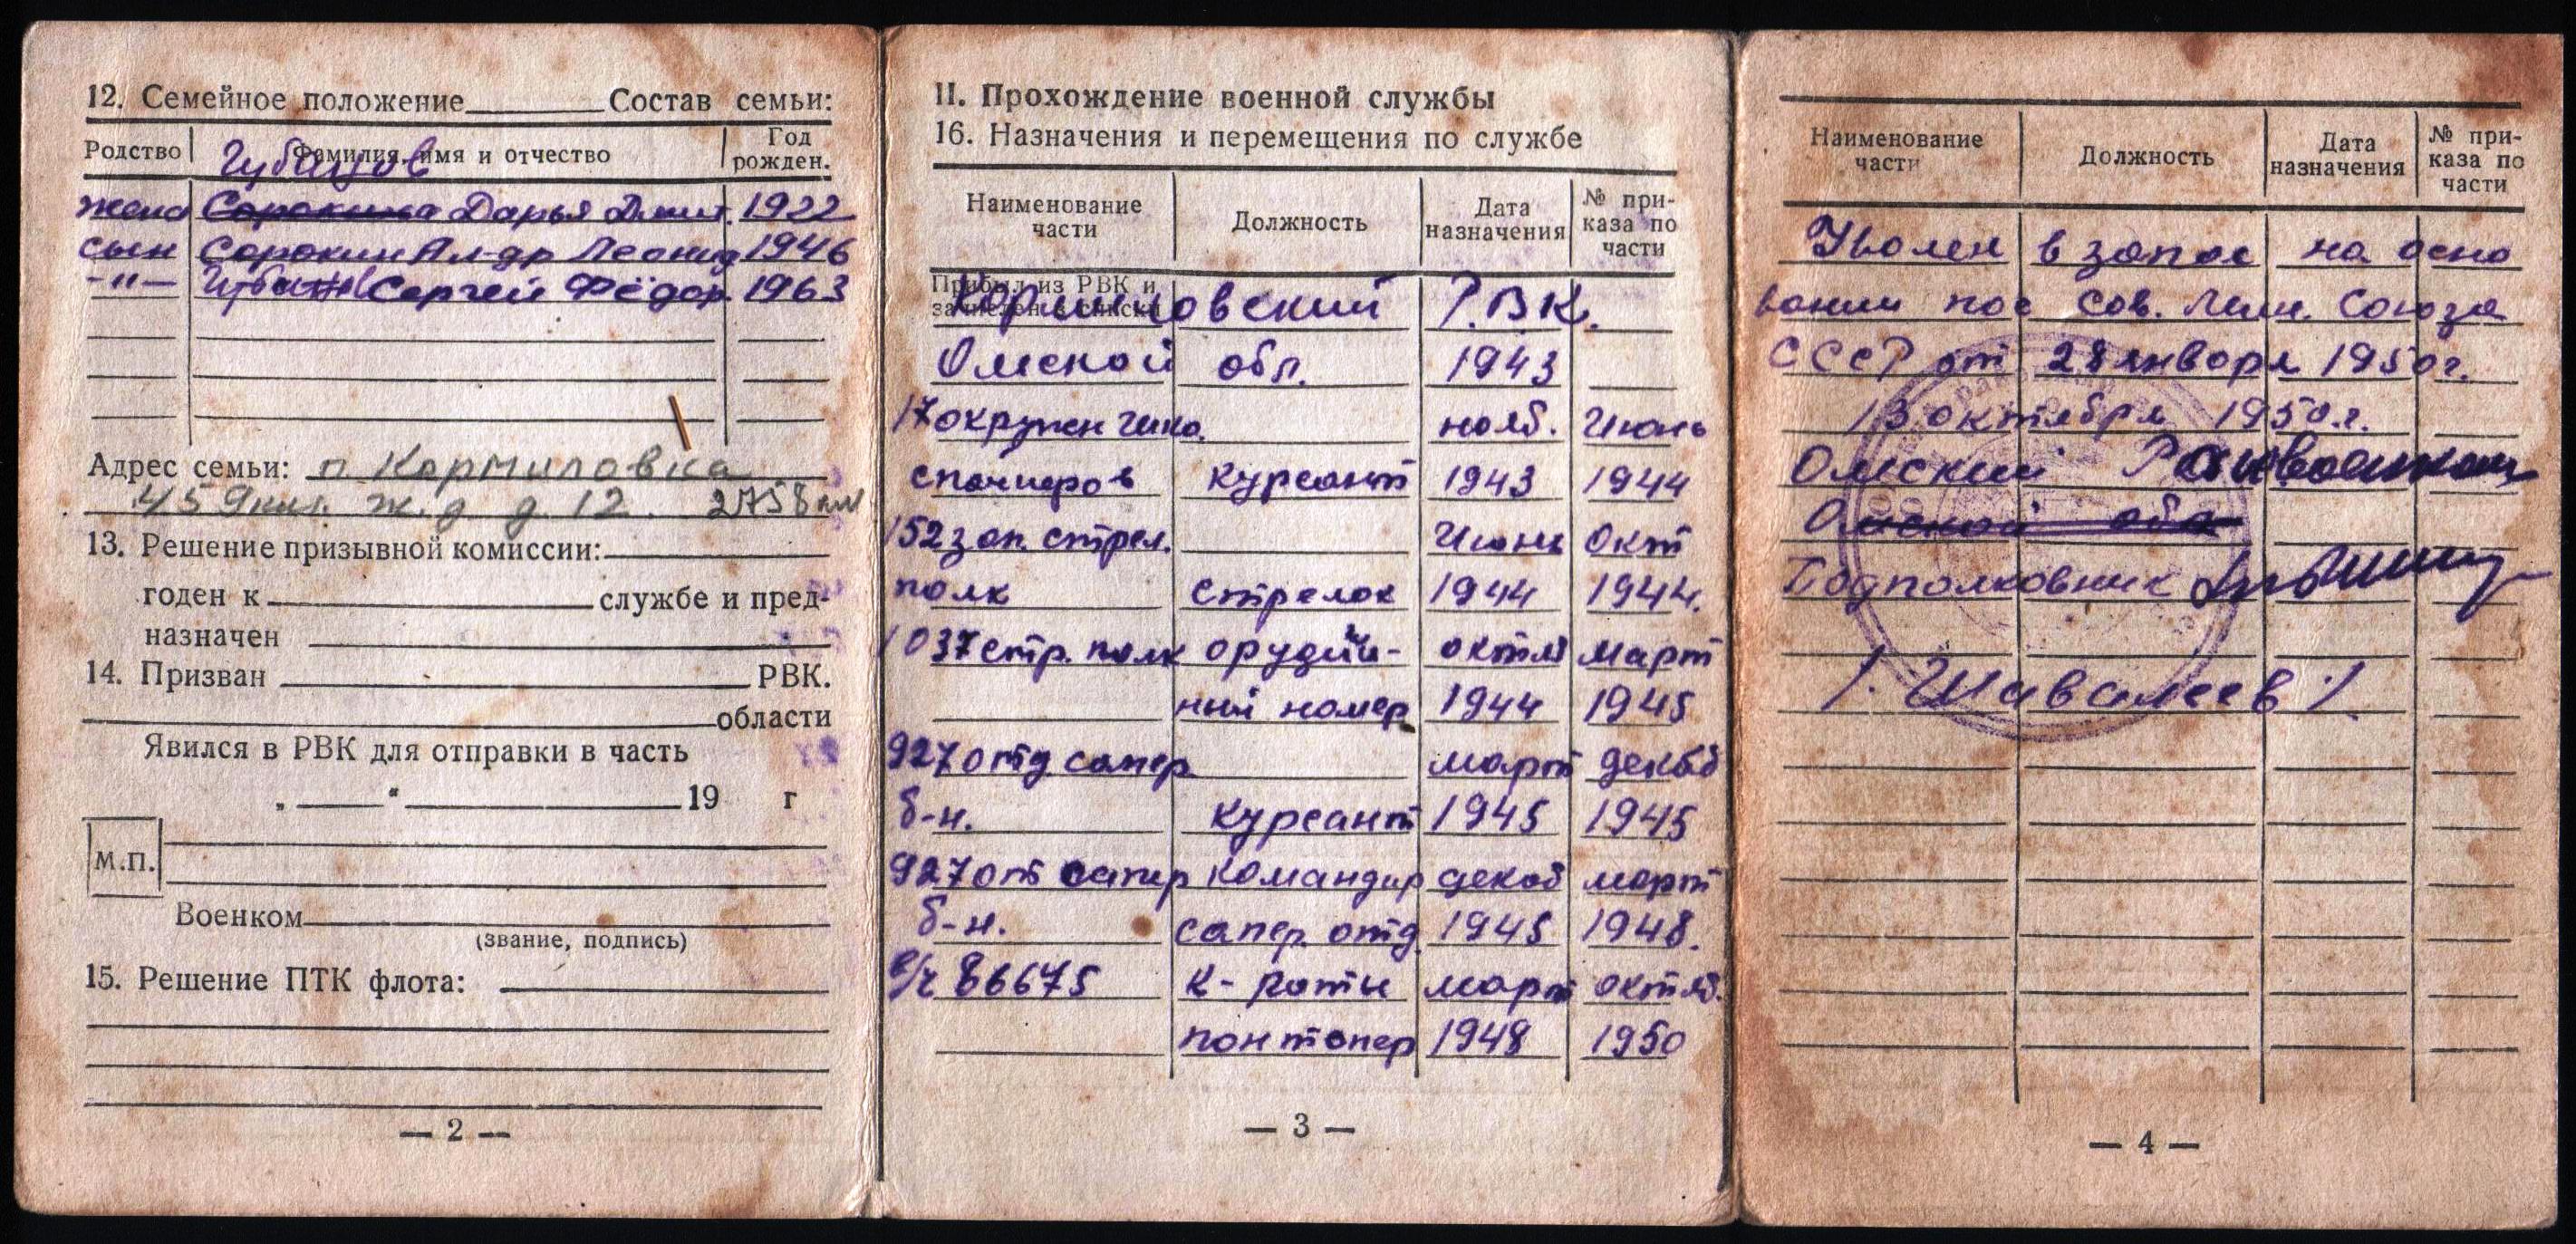 12. Семейное положение Состав семьи:
Родство Фамилия, имя и отчество Год рожден.
жена Сорокина Дарья Дмит. 1922
сын Сорокин Ал-др Леонид 1946
-"- Сергей Фёдор. 1963
Адрес семьи: п Кормиловка
459 ж.д д 12 2758 км
13. Решение призывной комиссии:
годен к службе и пред-
назначен
14. Призван РВК.
области
Явился в РВК для отправки в часть
„ “ 19 г
М.П.
Военком
(звание, подпись)
15. Решение ПТК флота:
— 2 —
II. Прохождение военной службы
16. Назначения и перемещения по службе
Наименование части Должность Дата назначения № при-каза по части
Прибыл из РВК и
зачислен в списки
Кормиловский Р.В.К.
Омской обл. 1943
17 окружн нояб. Июнь
снайперов курсант 1943 1944
152 зап. стрел. Июнь Окт
полк стрелок 1944 1944.
1037 стр. полк орудий- октяб март
ный номер 1944 1945
927 отд сапер март декаб
б-н. курсант 1945 1945
927 от сапер командир декаб март
б-н. сапер. отд 1945 1948.
в/ч 86675 к-роты март октяб.
понтонер 1948 1950
— 3 —
Наименование части Должность Дата назначения № при-каза по части
Уволен в запас на осно
вании пос Сов. Мин. Союза
СССР от 28 января 1950 г.
13 октября 1950 г.
Омский Райвоенком
Омской обл
Подполковник
/. Шавалеев /.
— 4 —